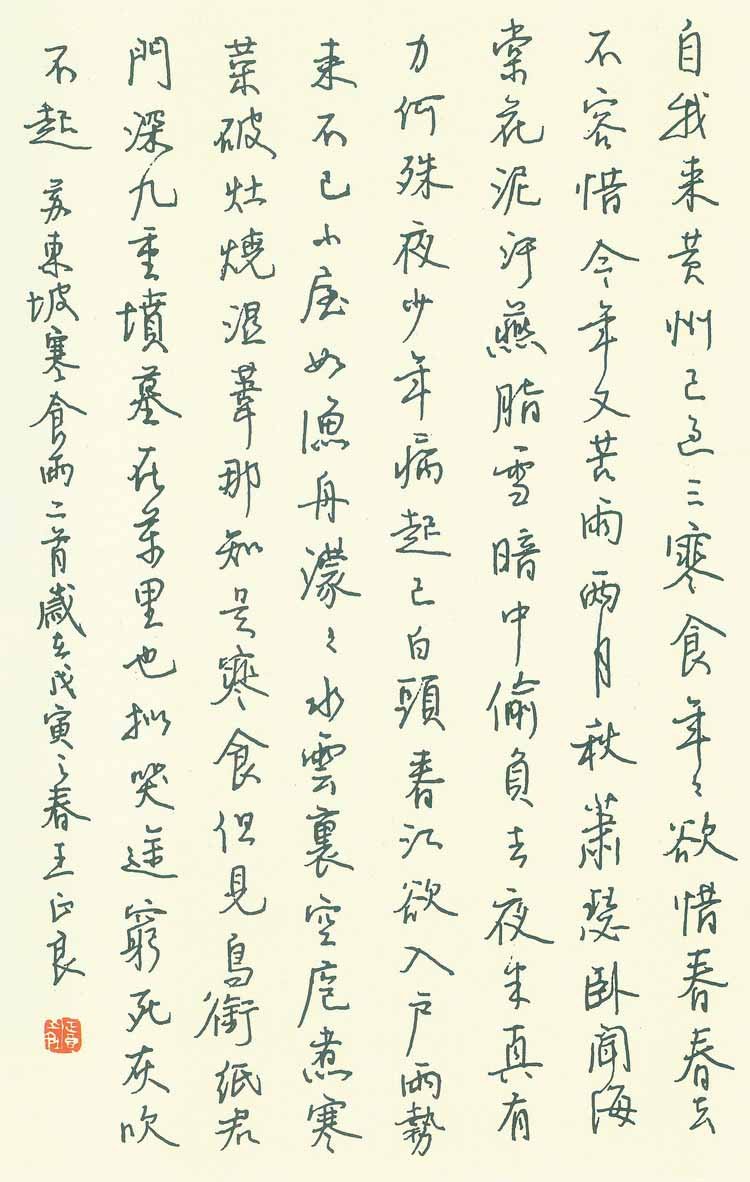 自我来黄州已过三寒食年々欲惜春春去
不容惜今年又苦雨兩月秋蕭瑟卧聞海
棠花泥汙燕脂雪暗中偷負去夜半真有
力何殊夜少年病起已白頭春江欲入户雨勢
来不已小屋如漁舟濛々水雲裏空庖煮寒
菜破灶燒湿葦那知是寒食但見烏銜紙君
門深九重墳墓在萬里也拟哭途窮死灰吹
不起 蘇東坡寒食雨二首歲在戊寅之春王正良